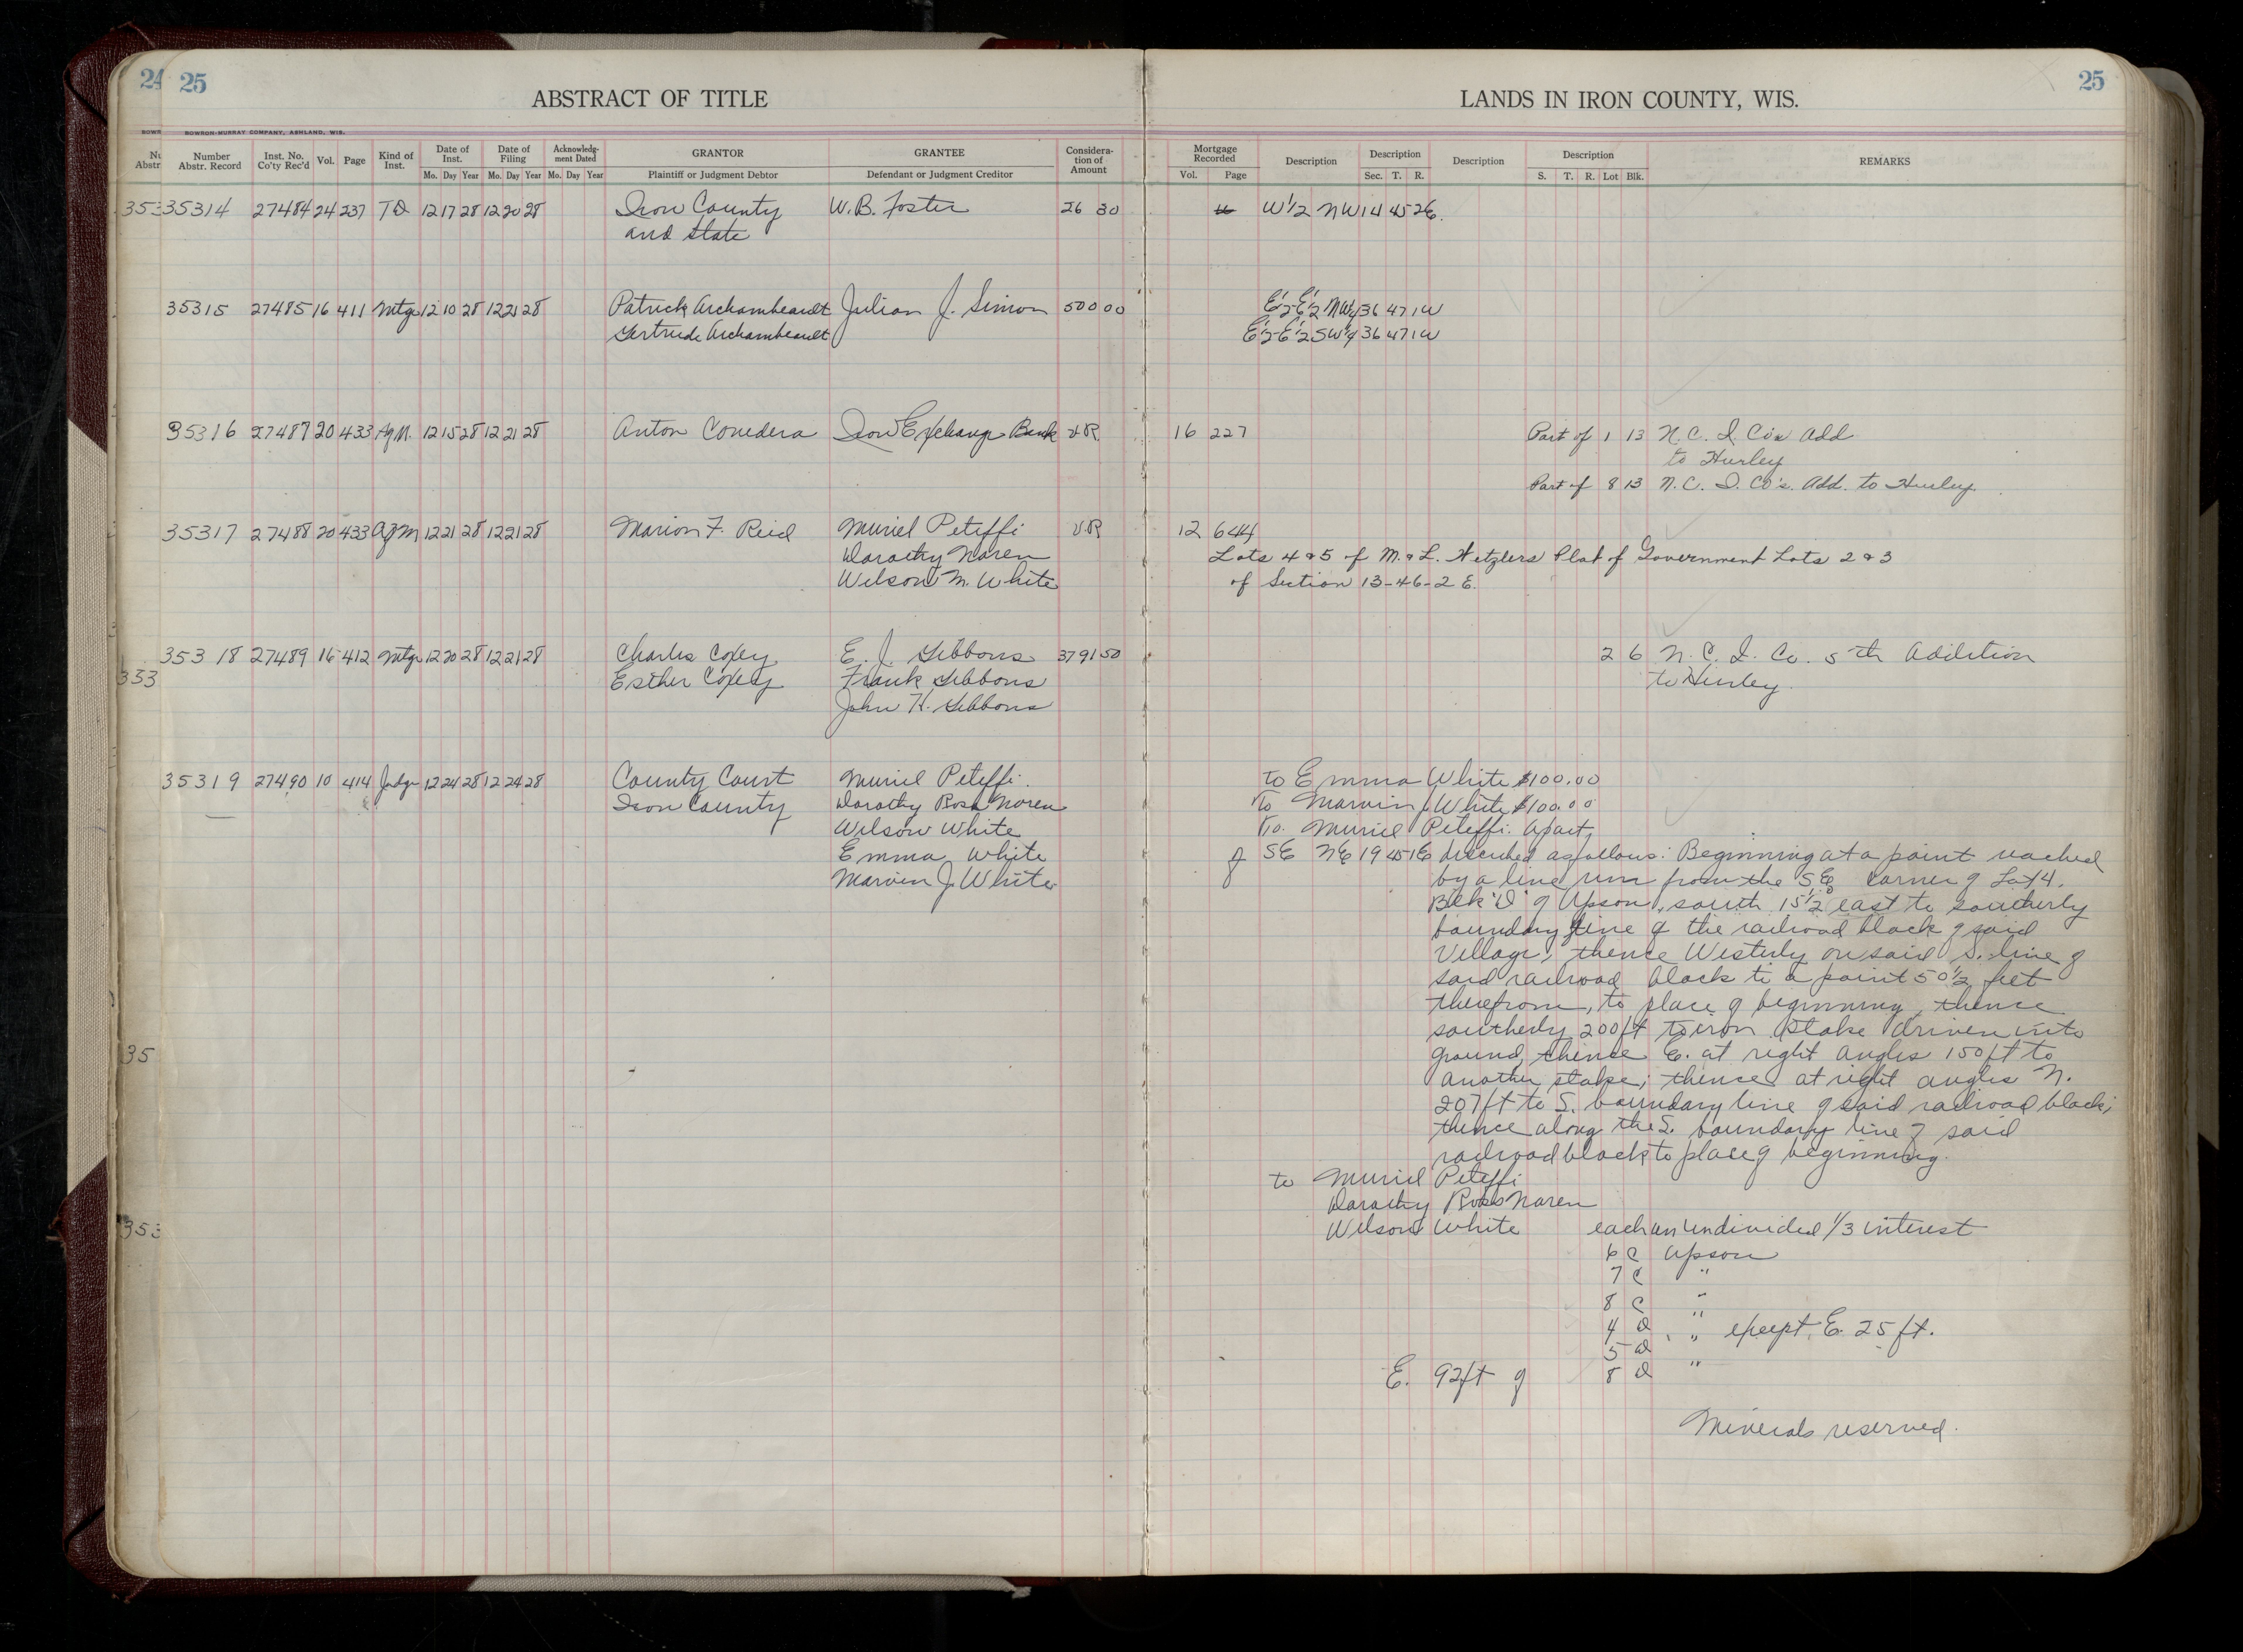 24 25
ABSTRACT OF TITLE
BOWRON-MURRAY COMPANY, ASHLAND, WIS.
Number Abstr. Record Inst. No. Co'ty Rec'd Vol. Page Kind of Inst. Date of Inst. Date of Filing Acknowledgment Dated GRANTOR GRANTEE Consideration of Amount
Mo. Day Year Mo. Day Year Mo. Day Year Plaintiff or Judgment Debtor Defendant or Judgment Creditor
35314 27484 24 237 TD 12 17 28 12 20 28 Iron County W. B. Foster 26 30
and State
35315 27485 16 411 Mtge 12 10 28 12 21 28 Patrick Archambeault Julian J. Simon 500 00
Gertrude Archambeault
35316 27487 20 433 AgM. 12 15 28 12 21 28 Anton Conedera Iron Exchange Bank VR
35317 27488 20 433 AgM 12 21 28 12 21 28 Marion F. Reid Muriel Peteffi VR
Dorothy Noren
Wilson M. White
35318 27489 16 412 Mtge 12 20 28 12 21 28 Charles Coxey E. J. Gibbons 3791 50
Esther Coxey Frank Gibbons
John H. Gibbons
35319 27490 10 414 Judge 12 24 28 12 24 28 County Court Muriel Peteffi.
Iron County Dorothy Ross Noren
Wilson White
Emma White
Marvin J. White
25
LANDS IN IRON COUNTY, WIS.
Mortgage Recorded Description Description Description Description REMARKS
Vol. Page Sec. T. R. S. T. R. Lot Blk.
W½ NW 14 45 2E.
E½-E½ NW¼ 36 47 1W
E½-E½ SW¼ 36 47 1W
16 227 Part of 1 13 N. C. I. Co's Add
to Hurley
Part of 8 13 N. C. I. Co's. Add. to Hurley
12 644
Lots 4 & 5 of M. & L. Netzlers Plat of Government Lots 2 & 3
of Section 13-46-2 E.
2 6 N. C. I. Co. 5th Addition
to Hurley.
To Emma White $100.00
To Marvin J White $100.00
To. Muriel Peteffi. A part
of SE NE 19 45 1E described as follows: Beginning at a point reached
by a line run from the SE corner of Lot 4,
Blk "D" of Upson, south 15½ east to southerly
boundary line of the railroad block of said
Village, thence Westerly on said S. line of
said railroad block to a point 50½ feet
therefrom, to place of beginning, thence
southerly 200 ft to iron stake driven into
ground, thence E. at right angles 150 ft to
another stake; thence at right angles N.
207 ft to S. boundary line of said railroad block;
thence along the S. boundary line of said
railroad block to place of beginning.
to Muriel Peteffi
Dorothy Ross Noren
Wilson White each an undivided 1/3 interest
6 C Upson
7 C "
8 C "
4 D " except E. 25 ft.
5 D "
E. 92 ft of 8 D "
Minerals reserved.